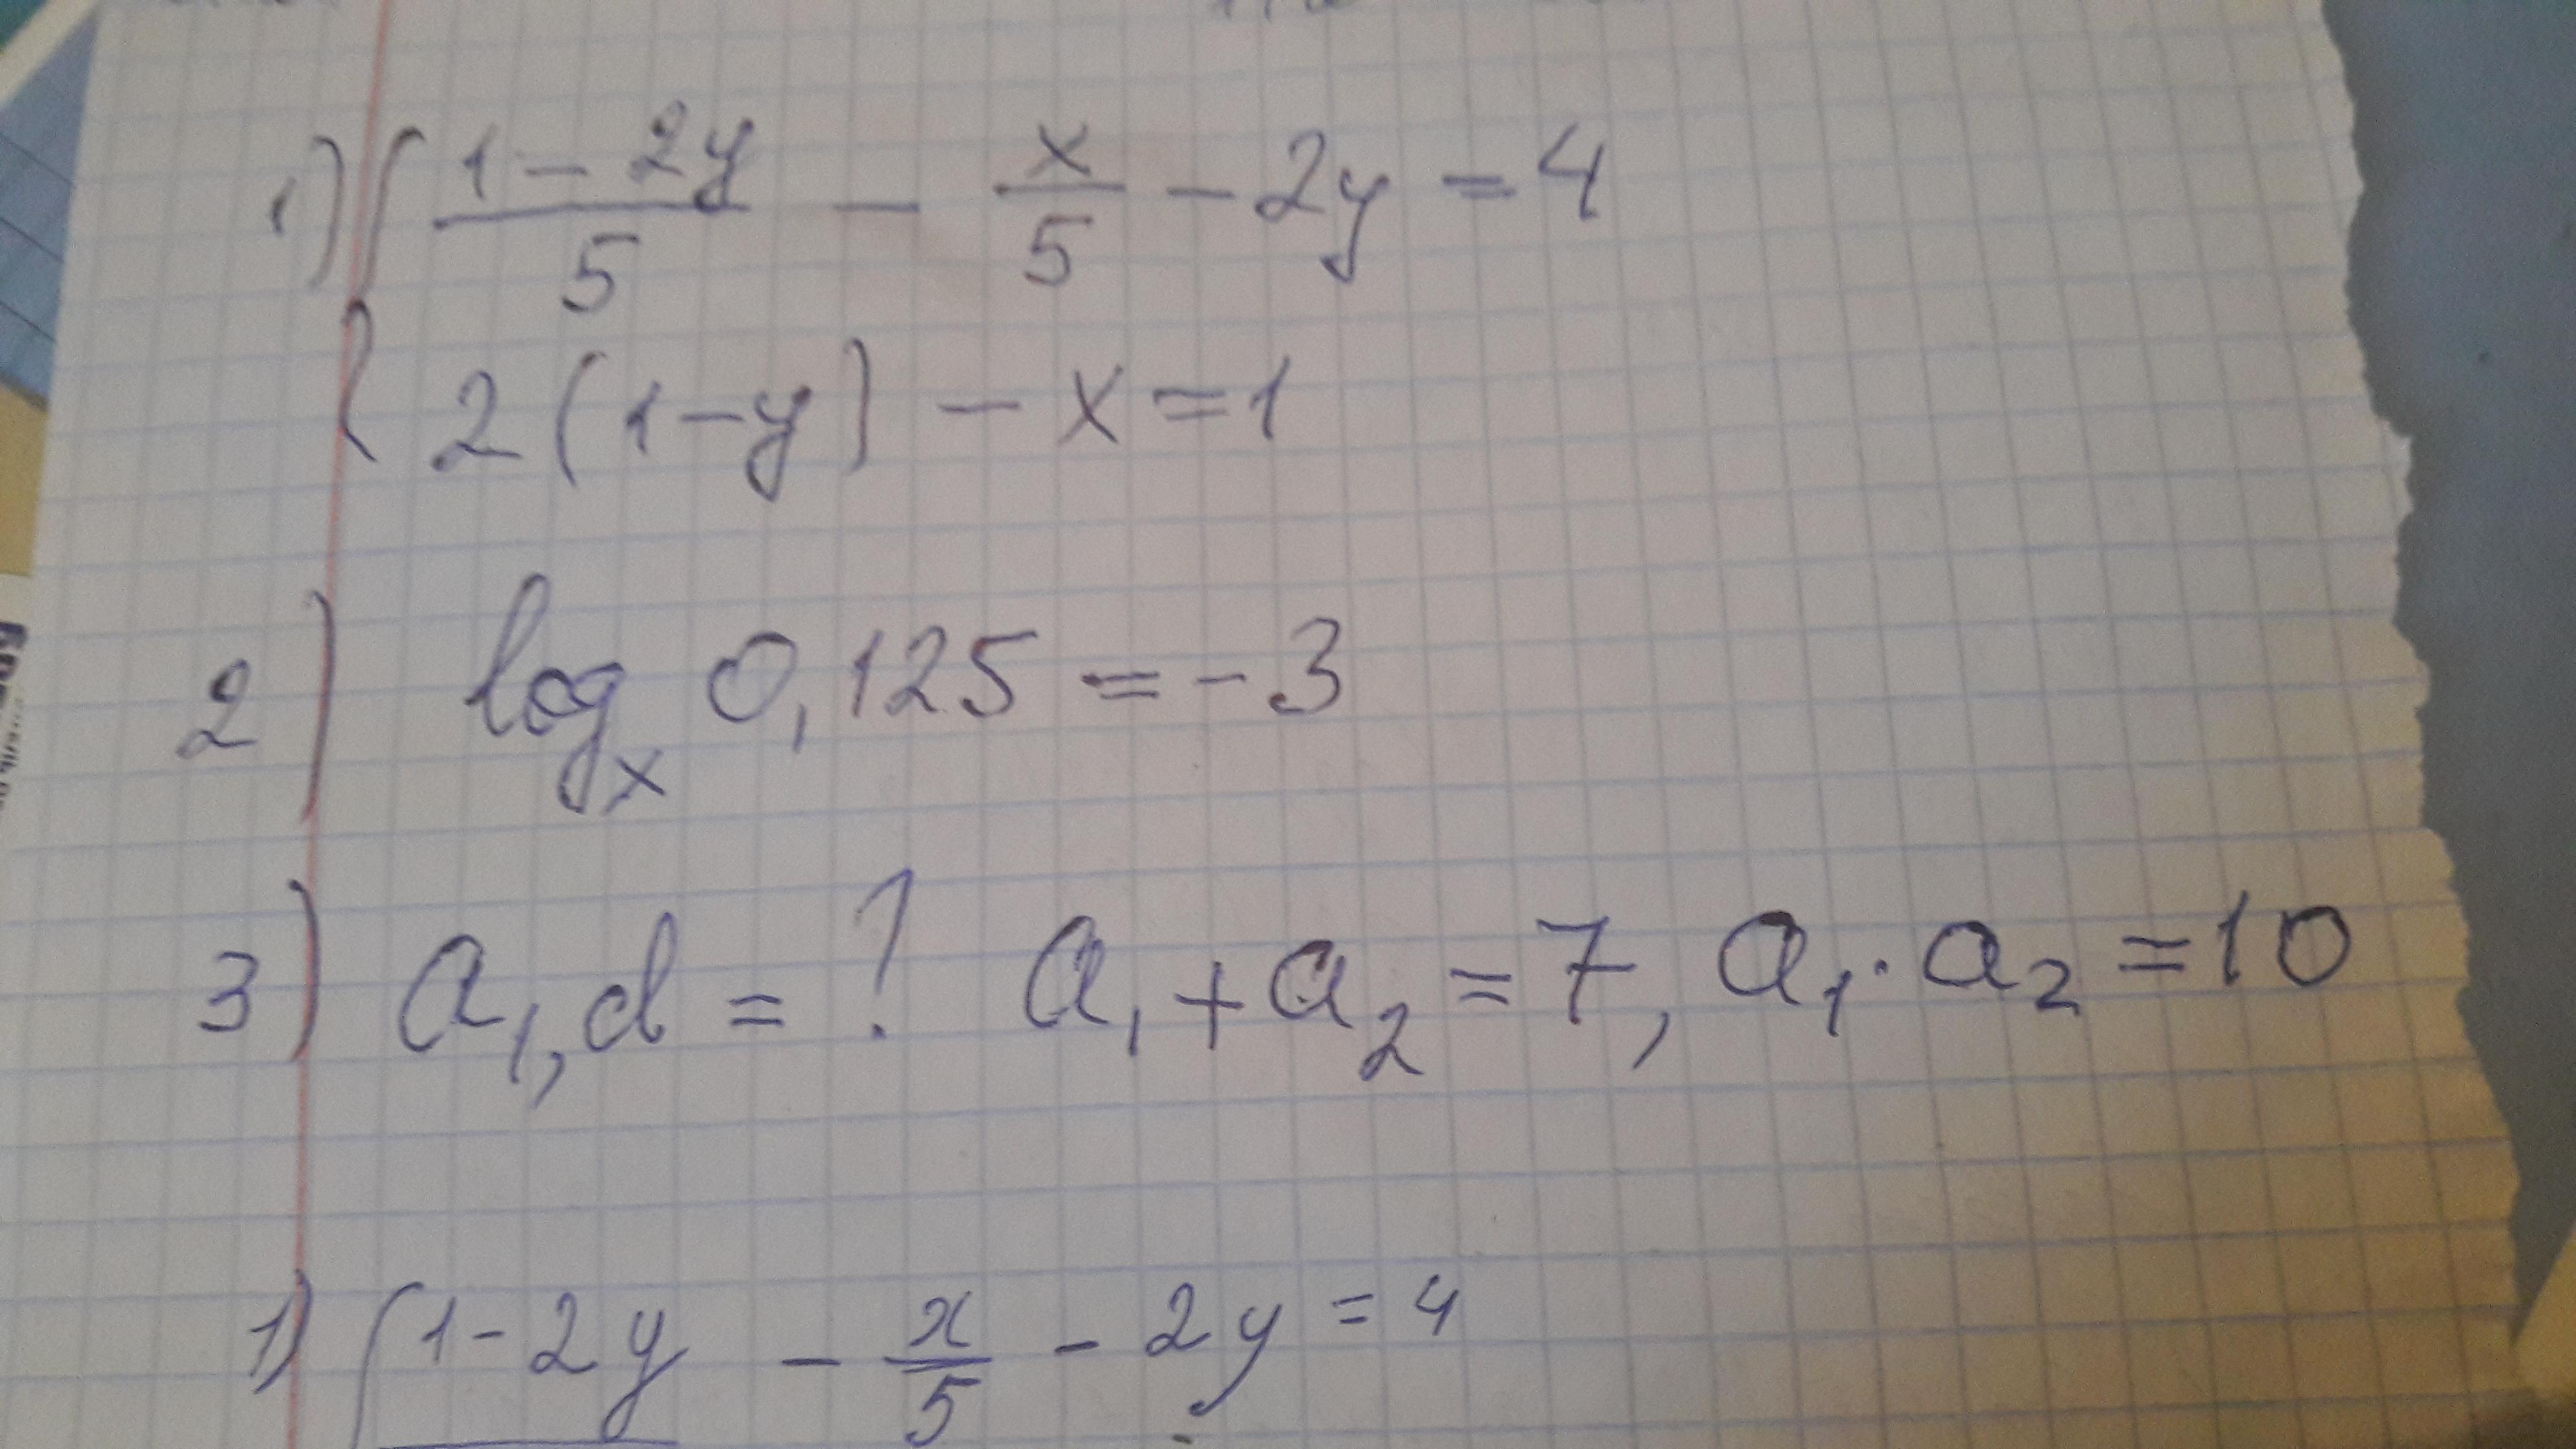 1) { (1 - 2y)/5 - x/5 - 2y = 4
2(1-y) - x = 1
2) logₓ 0,125 = -3
3) a₁, d = ? a₁ + a₂ = 7, a₁ · a₂ = 10
1) { 1 - 2y - x/5 - 2y = 4